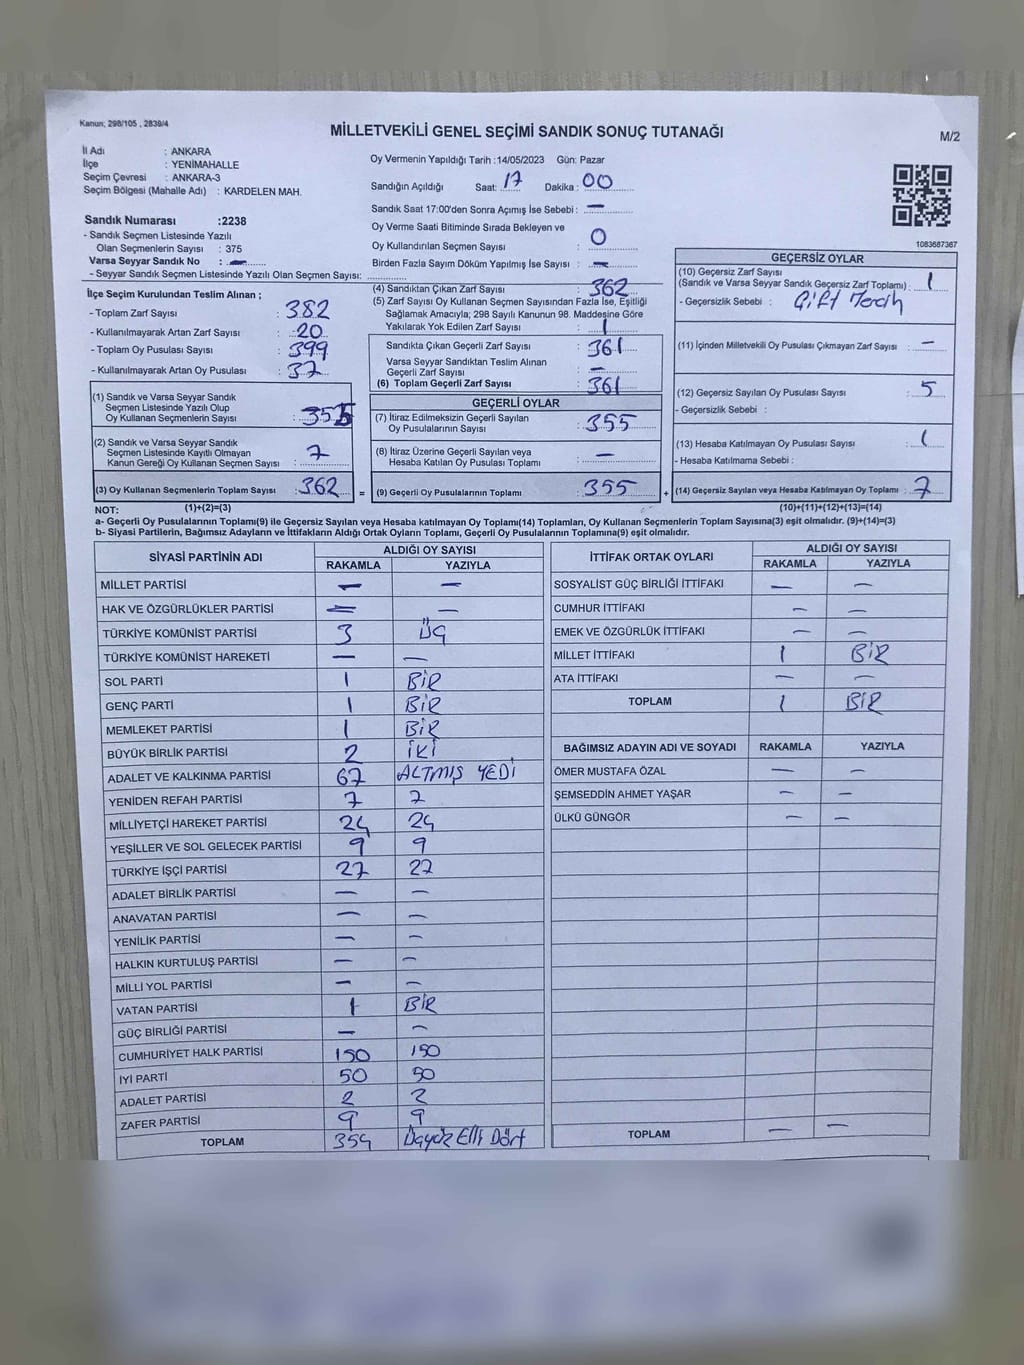 Kanun; 298/105 , 2839/4
MİLLETVEKİLİ GENEL SEÇİMİ SANDIK SONUÇ TUTANAĞI
M/2
İl Adı : ANKARA
İlçe : YENİMAHALLE
Seçim Çevresi : ANKARA-3
Seçim Bölgesi (Mahalle Adı) : KARDELEN MAH.
Sandık Numarası :2238
- Sandık Seçmen Listesinde Yazılı
Olan Seçmenlerin Sayısı : 375
Varsa Seyyar Sandık No : —
- Seyyar Sandık Seçmen Listesinde Yazılı Olan Seçmen Sayısı:
Oy Vermenin Yapıldığı Tarih :14/05/2023 Gün: Pazar
Sandığın Açıldığı Saat: 17 Dakika : 00
Sandık Saat 17:00'den Sonra Açımış İse Sebebi : —
Oy Verme Saati Bitiminde Sırada Bekleyen ve
Oy Kullandırılan Seçmen Sayısı : 0
Birden Fazla Sayım Döküm Yapılmış İse Sayısı : —
1083687367
İlçe Seçim Kurulundan Teslim Alınan ;
- Toplam Zarf Sayısı : 382
- Kullanılmayarak Artan Zarf Sayısı : 20
- Toplam Oy Pusulası Sayısı : 399
- Kullanılmayarak Artan Oy Pusulası : 37
(1) Sandık ve Varsa Seyyar Sandık
Seçmen Listesinde Yazılı Olup
Oy Kullanan Seçmenlerin Sayısı : 355
(2) Sandık ve Varsa Seyyar Sandık
Seçmen Listesinde Kayıtlı Olmayan
Kanun Gereği Oy Kullanan Seçmen Sayısı : 7
(3) Oy Kullanan Seçmenlerin Toplam Sayısı : 362
(1)+(2)=(3)
(4) Sandıktan Çıkan Zarf Sayısı : 362
(5) Zarf Sayısı Oy Kullanan Seçmen Sayısından Fazla İse, Eşitliği
Sağlamak Amacıyla; 298 Sayılı Kanunun 98. Maddesine Göre
Yakılarak Yok Edilen Zarf Sayısı : 1
Sandıkta Çıkan Geçerli Zarf Sayısı : 361
Varsa Seyyar Sandıktan Teslim Alınan
Geçerli Zarf Sayısı : —
(6) Toplam Geçerli Zarf Sayısı : 361
GEÇERLİ OYLAR
(7) İtiraz Edilmeksizin Geçerli Sayılan
Oy Pusulalarının Sayısı : 355
(8) İtiraz Üzerine Geçerli Sayılan veya
Hesaba Katılan Oy Pusulası Toplamı : —
= (9) Geçerli Oy Pusulalarının Toplamı : 355 +
GEÇERSİZ OYLAR
(10) Geçersiz Zarf Sayısı
(Sandık ve Varsa Seyyar Sandık Geçersiz Zarf Toplamı) : 1
- Geçersizlik Sebebi : Çift Tercih
(11) İçinden Milletvekili Oy Pusulası Çıkmayan Zarf Sayısı : —
(12) Geçersiz Sayılan Oy Pusulası Sayısı : 5
- Geçersizlik Sebebi :
(13) Hesaba Katılmayan Oy Pusulası Sayısı : 1
- Hesaba Katılmama Sebebi :
(14) Geçersiz Sayılan veya Hesaba Katılmayan Oy Toplamı : 7
(10)+(11)+(12)+(13)=(14)
NOT:
a- Geçerli Oy Pusulalarının Toplamı(9) ile Geçersiz Sayılan veya Hesaba katılmayan Oy Toplamı(14) Toplamları, Oy Kullanan Seçmenlerin Toplam Sayısına(3) eşit olmalıdır. (9)+(14)=(3)
b- Siyasi Partilerin, Bağımsız Adayların ve İttifakların Aldığı Ortak Oyların Toplamı, Geçerli Oy Pusulalarının Toplamına(9) eşit olmalıdır.
SİYASİ PARTİNİN ADI ALDIĞI OY SAYISI
RAKAMLA YAZIYLA
MİLLET PARTİSİ — —
HAK VE ÖZGÜRLÜKLER PARTİSİ — —
TÜRKİYE KOMÜNİST PARTİSİ 3 ÜÇ
TÜRKİYE KOMÜNİST HAREKETİ — —
SOL PARTİ 1 BİR
GENÇ PARTİ 1 BİR
MEMLEKET PARTİSİ 1 BİR
BÜYÜK BİRLİK PARTİSİ 2 İKİ
ADALET VE KALKINMA PARTİSİ 67 ALTMIŞ YEDİ
YENİDEN REFAH PARTİSİ 7 7
MİLLİYETÇİ HAREKET PARTİSİ 24 24
YEŞİLLER VE SOL GELECEK PARTİSİ 9 9
TÜRKİYE İŞÇİ PARTİSİ 27 27
ADALET BİRLİK PARTİSİ — —
ANAVATAN PARTİSİ — —
YENİLİK PARTİSİ — —
HALKIN KURTULUŞ PARTİSİ — —
MİLLİ YOL PARTİSİ — —
VATAN PARTİSİ 1 BİR
GÜÇ BİRLİĞİ PARTİSİ — —
CUMHURİYET HALK PARTİSİ 150 150
İYİ PARTİ 50 50
ADALET PARTİSİ 2 2
ZAFER PARTİSİ 9 9
TOPLAM 354 Üçyüz Elli Dört
İTTİFAK ORTAK OYLARI ALDIĞI OY SAYISI
RAKAMLA YAZIYLA
SOSYALİST GÜÇ BİRLİĞİ İTTİFAKI — —
CUMHUR İTTİFAKI — —
EMEK VE ÖZGÜRLÜK İTTİFAKI — —
MİLLET İTTİFAKI 1 BİR
ATA İTTİFAKI — —
TOPLAM 1 BİR
BAĞIMSIZ ADAYIN ADI VE SOYADI RAKAMLA YAZIYLA
ÖMER MUSTAFA ÖZAL — —
ŞEMSEDDİN AHMET YAŞAR — —
ÜLKÜ GÜNGÖR — —
TOPLAM — —